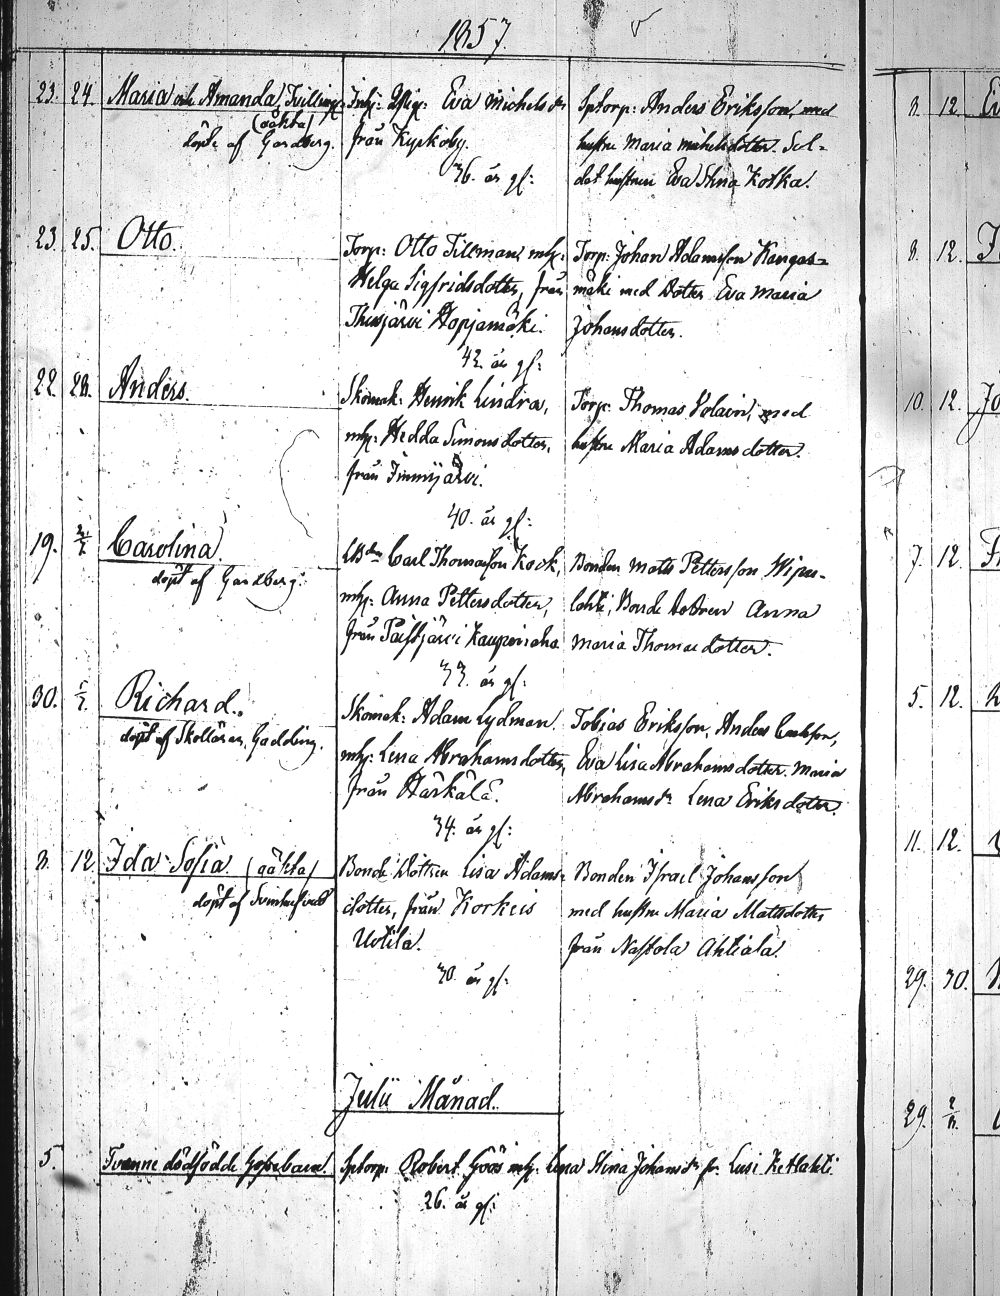 1857.
23. 24. Maria och Amanda, Tvillingar
(oäkta)
döpte af Gardberg.
Inhs: Qpig: Eva Michelsdr
från Kyrkoby.
36. år gl:
Sptorp: Anders Eriksson, med
hustru Maria Michelsdotter. Sol-
dat hustrun Eva Stina Kotka.
23. 25. Otto.
Torp: Otto Tilleman, mhu:
Helga Sigfridsdotter, från
Thusjärvi Hopjamäki.
42. år gl:
Torp: Johan Adamsson Kangas-
mäki med dotter Eva Maria
Johansdotter.
22. 28. Anders.
Skomak: Henrik Lindra,
mhu: Hedda Simonsdotter,
från Immijärvi.
40. år gl:
Torp: Thomas Volain, med
hustru Maria Adamsdotter.
19. Carolina.
döpt af Gardberg.
Carl Thomasson Kock,
mhu: Anna Pettersdotter,
från Paistjärvi Kaupinaho
33. år gl:
Bonden Matts Pettersson Wipu-
lahti, Bonde dottren Anna
Maria Thomasdotter.
30. 1/7. Richard.
döpt af Skollärar. Gadding.
Skomak: Adam Lydman.
mhu: Lena Abrahamsdotter,
från Härkälä.
34. år gl:
Tobias Eriksson, Anders
Eva Lisa Abrahamsdotter. Maria
Abrahamsdr Lena Eriksdotter.
8. 12. Ida Sofia. (oäkta)
döpt af
Bonde Dottren Lisa Adams-
dotter, från Korkeis
Uotila.
30. år gl:
Bonden Israel Johansson
med hustru Maria Mattsdotter
från Nastola Ahtiala.
Julii Månad.
5. Tvenne dödfödde Gossebarn.
Sptorp: Robert Göös mhu: Lena Stina Johansdr fr. Lusi Ketlahti.
26. år gl:
8. 12.
8. 12.
10. 12.
7. 12.
5. 12.
11. 12.
29. 30.
29. 2/8.